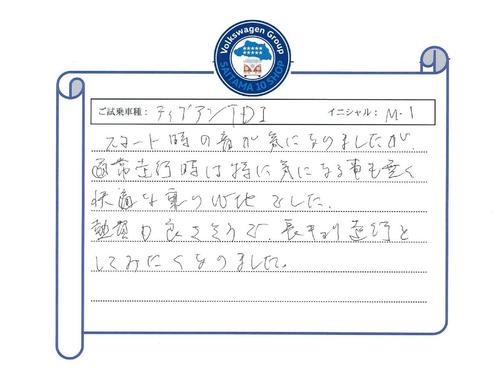 Volkswagen Group
SAITAMA 10 SHOP
ご試乗車種： ティグアンTDI イニシャル： M・I
スタート時の音が気になりましたが、
通常走行時は特に気になる事も無く
快適な乗り心地でした。
燃費も良さそうで、長キョリ走行を
してみたくなりました。